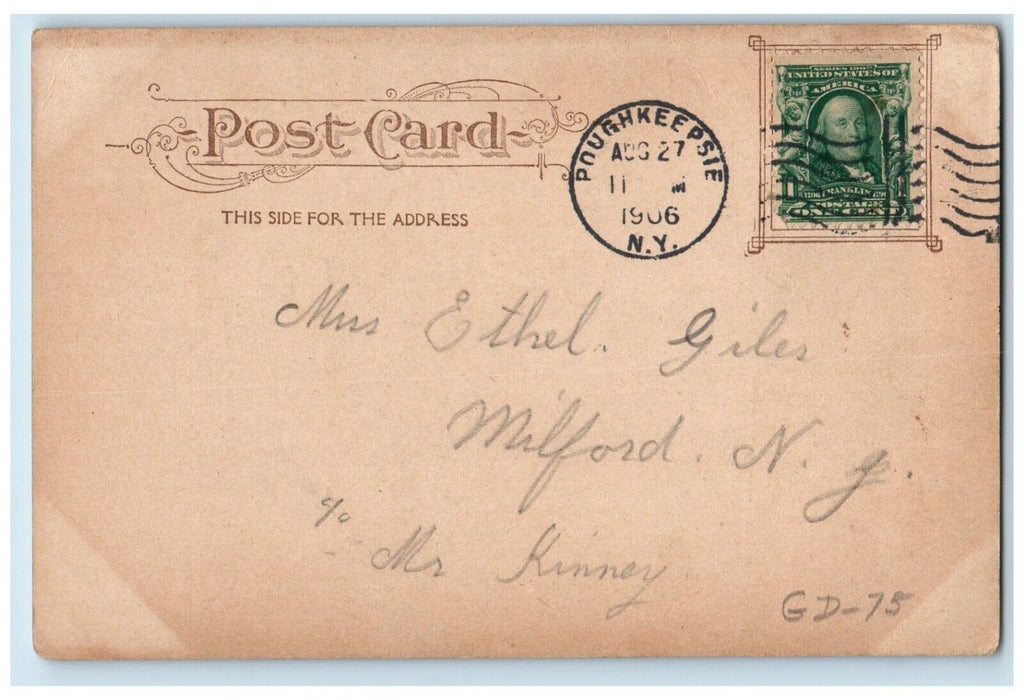 Post Card
THIS SIDE FOR THE ADDRESS
POUGHKEEPSIE
AUG 27
11 M
1906
N.Y.
UNITED STATES OF
AMERICA
FRANKLIN
POSTAGE
ONE CENT
Miss Ethel. Giles
Milford. N. J.
c/o
Mr Kinney
GD-75